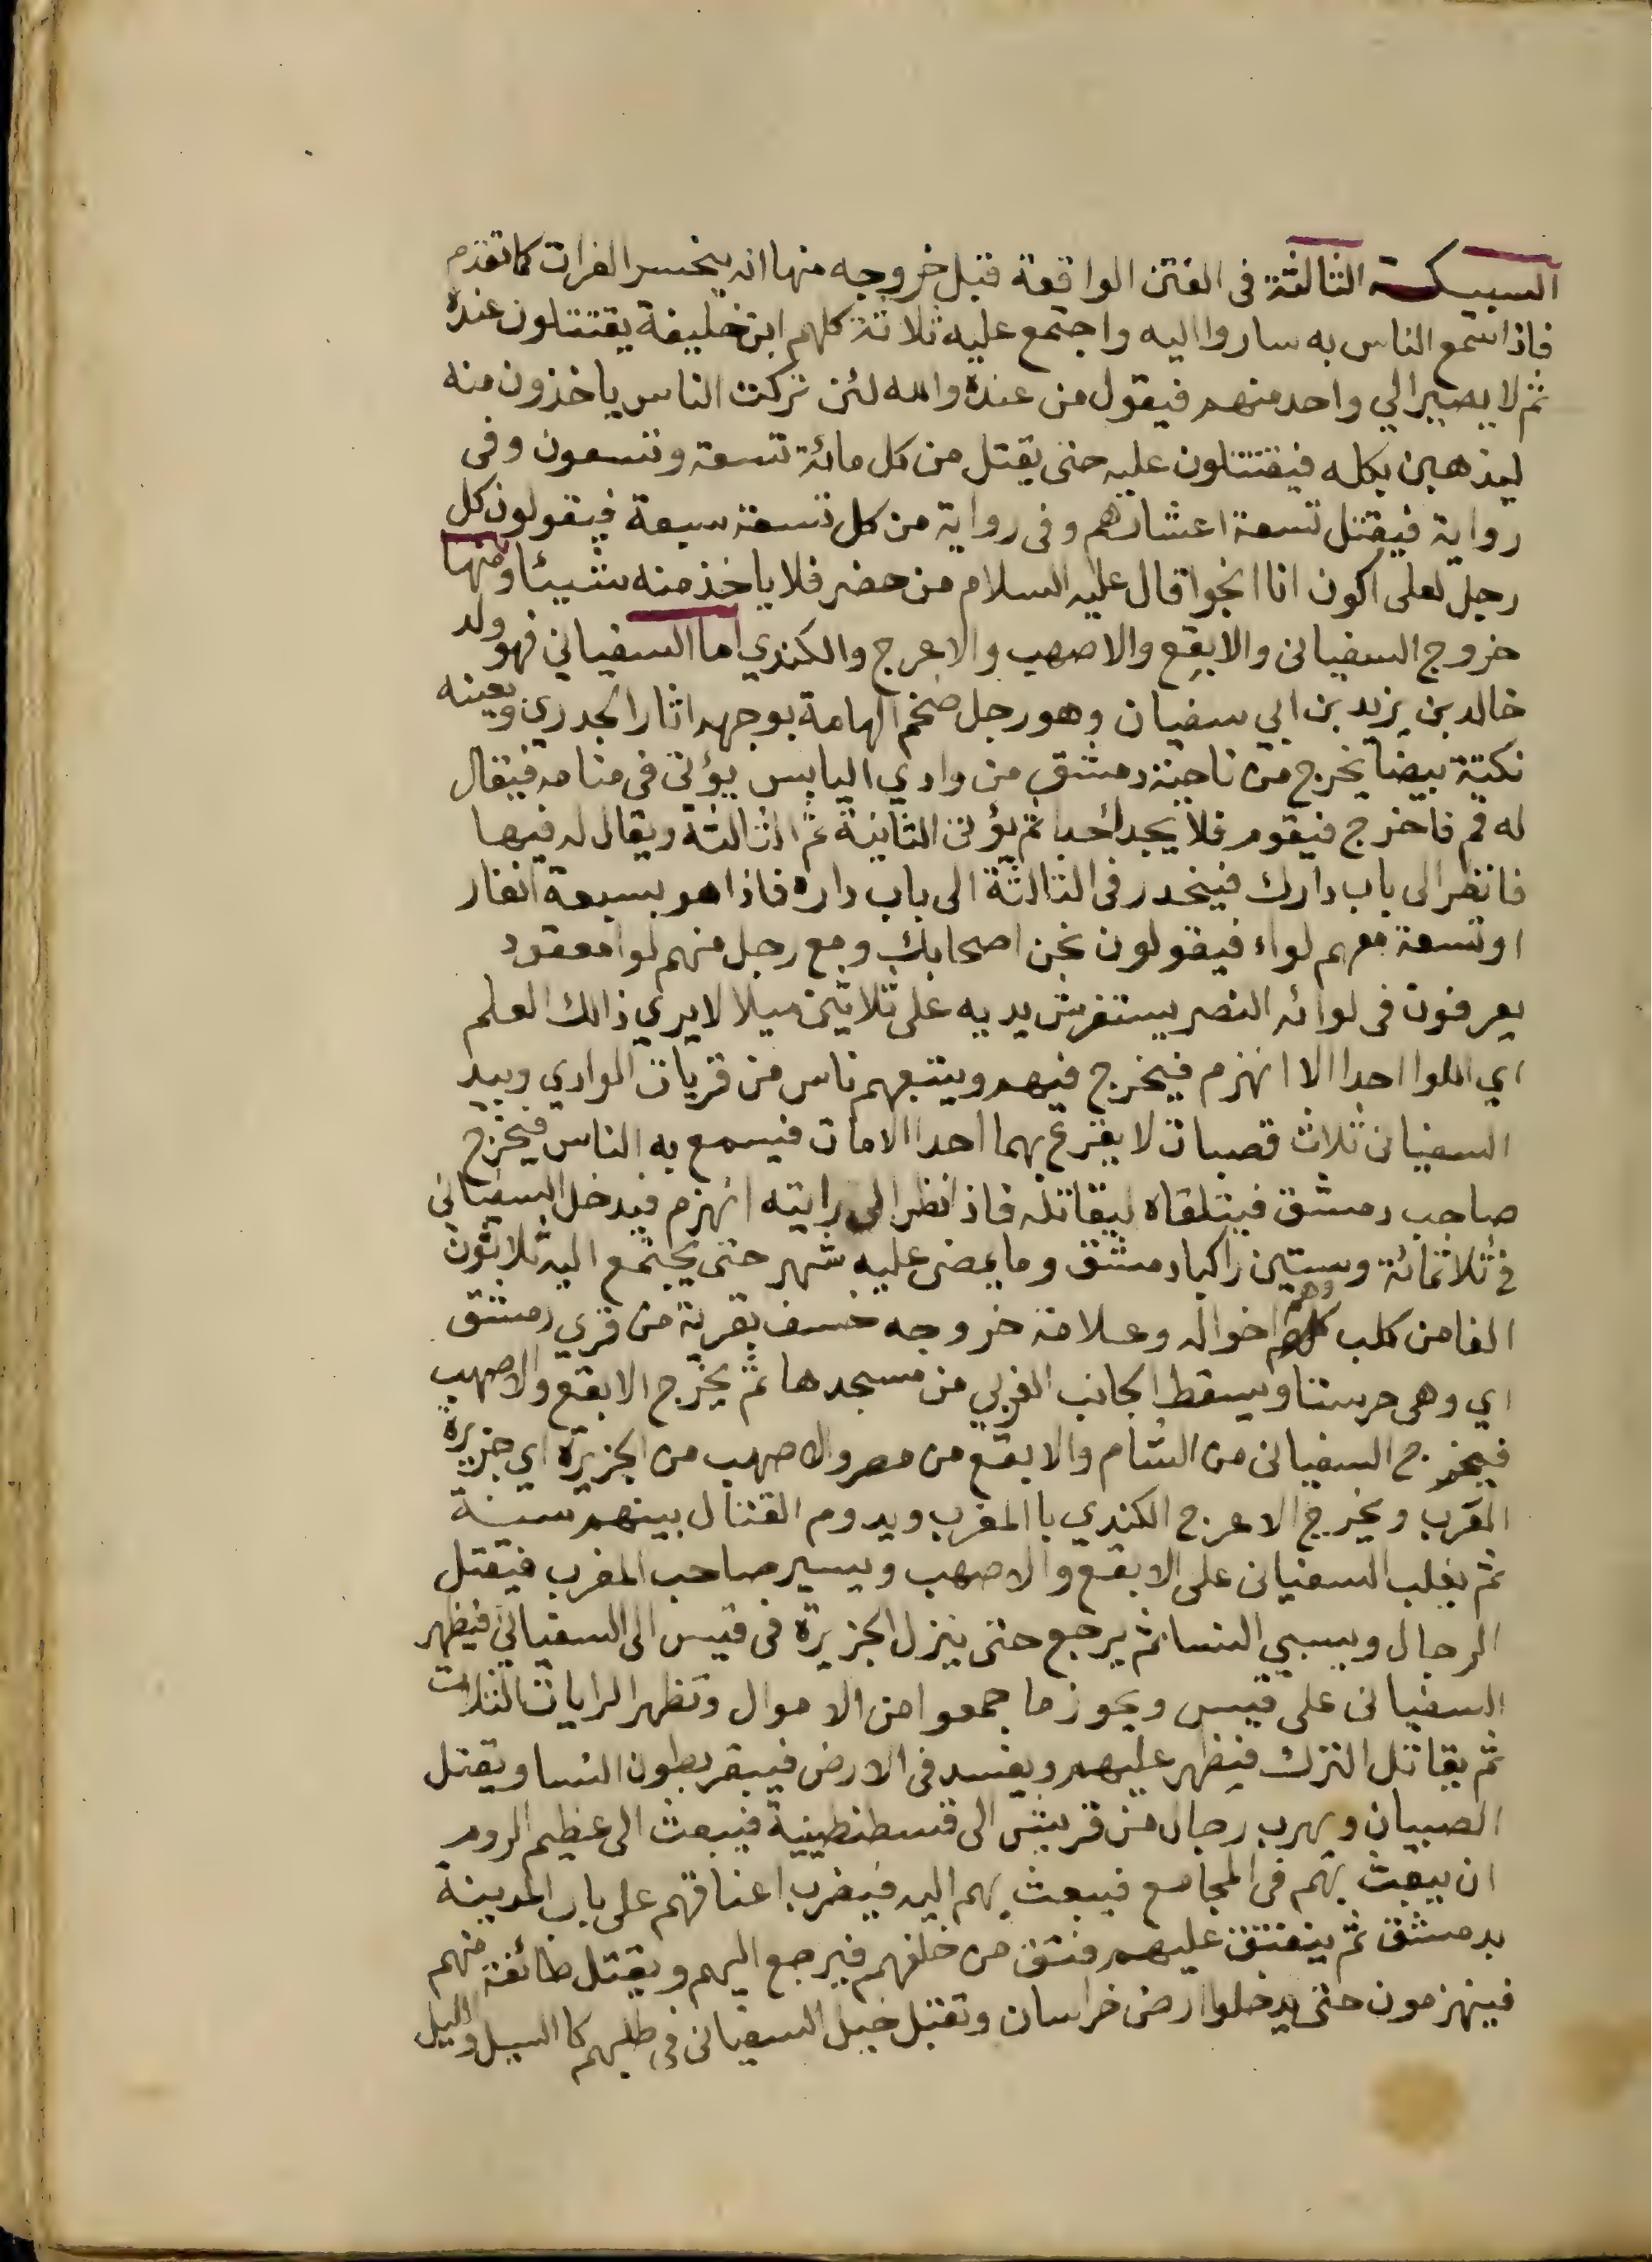 السبيكة الثالثة فى الفتن الواقعة قبل خروجه منها انه ينحسر الفرات كما تقدم
فاذا سمع الناس به ساروا اليه واجتمع عليه ثلاثة كلهم ابن خليفة يقتتلون عنده
ثم لا يصير الي واحد منهم فيقول من عنده والله لئن تركت الناس ياخذون منه
ليذهبن بكله فيقتتلون عليه حتى يقتل من كل مائة تسعة وتسعون وفى
رواية فيقتل تسعة اعشارهم وفى رواية من كل تسعة سبعة فيقولون كل
رجل لعلى اكون انا انجوا قال عليه السلام من حضر فلا ياخذ منه شيئا ومنها
خروج السفيانى والابقع والاصهب والاعرج والكندي اما السفياني فهو ولد
خالد بن يزيد بن ابي سفيان وهو رجل ضخم الهامة بوجهه اثار الجدري وبعينه
نكتة بيضا يخرج من ناحية دمشق من وادي اليابس يؤتى فى منامه فيقال
له قم فاخرج فيقوم فلا يجد احدا ثم يؤتى الثانية ثم الثالثة ويقال له فيها
فانظر الى باب دارك فينحدر فى الثالثة الى باب داره فاذا هو بسبعة انفار
او تسعة معهم لواء فيقولون نحن اصحابك ومع رجل منهم لوا معقود
يعرفون فى لوائه النصر يستفرش يديه على ثلاثين ميلا لا يري ذالك العلم
اي اللوا احدا الا انهزم فيخرج فيهم ويتبعهم ناس من قريات الوادي وبيد
السفيانى ثلاث قصبات لا يقرع بهما احدا الا مات فيسمع به الناس فيخرج
صاحب دمشق فيتلقاه ليقاتله فاذا نظر الى رايته انهزم فيدخل السفيانى
فى ثلاثمائة وستين راكبا دمشق وما يمضى عليه شهر حتى يجتمع اليه ثلاثون
الفا من كلب وهم اخواله وعلامة خروجه خسف بقرية من قري دمشق
اي وهى حرستا ويسقط الجانب الغربي من مسجدها ثم يخرج الابقع والاصهب
فيخرج السفيانى من الشام والابقع من مصر والاصهب من الجزيرة اي جزيرة
العرب ويخرج الاعرج الكندي با المغرب ويدوم القتال بينهم سنة
ثم يغلب السفيانى على الابقع والاصهب ويسير صاحب المغرب فيقتل
الرجال ويسبي النسا ثم يرجع حتى ينزل الجزيرة فى قيس الى السفياني فيظهر
السفيانى على قيس ويحوز ما جمعوا من الاموال وتظهر الرايات الثلاث
ثم يقاتل الترك فيظهر عليهم ويفسد فى الارض فيبقر بطون النسا ويقتل
الصبيان ويهرب رجال من قريش الى قسطنطينية فيبعث الى عظيم الروم
ان يبعث بهم فى المجامع فيبعث بهم اليه فيضرب اعناقهم على باب المدينة
بدمشق ثم ينفتق عليهم فتق من خلفهم فيرجع اليهم ويقتل طائفة منهم
فينهزمون حتى يدخلوا ارض خراسان وتقبل خيل السفيانى فى طلبهم كا السيل والليل